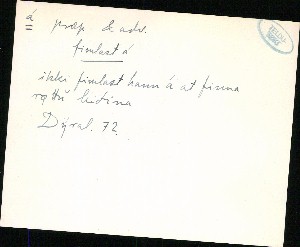 á præp & adv.
fimlast á
ikki fimlast hann á at finna
røttu leiðina
Dýral. 72.